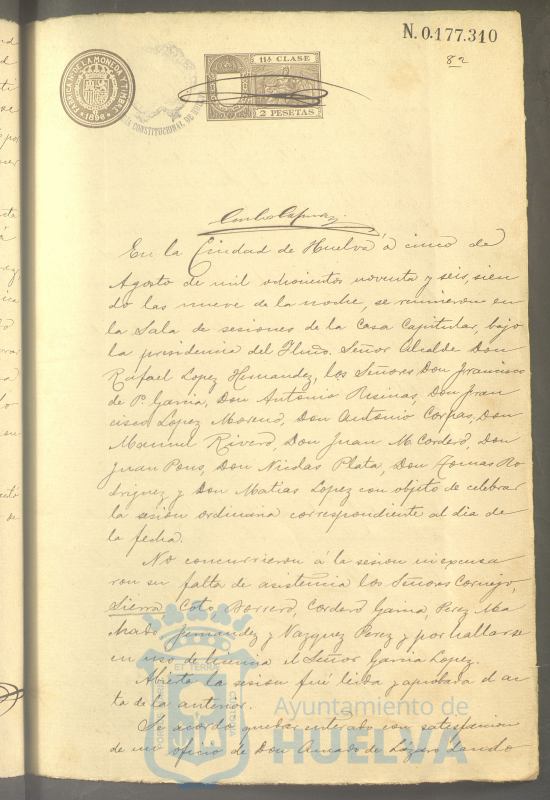 N. 0.177.310
82
FABRICA DE LA MONEDA Y TIMBRE
* 1896 *
CONSTITUCIONAL DE
11ª CLASE
2 PESETAS
En la Ciudad de Huelva á cinco de
Agosto de mil ochocientos noventa y seis, sien
do las nueve de la noche, se reunieron en
la Sala de sesiones de la Casa Capitular, bajo
la presidencia del Iltmo. Señor Alcalde Don
Rafael Lopez Hernandez, los Señores Don Francisco
de P. Garcia, Don Antonio Resinas, Don Fran
cisco Lopez Moreno, Don Antonio Corpas, Don
Manuel Rivero, Don Juan M. Cordero, Don
Juan Pons, Don Nicolas Plata, Don Tomas Ro
driguez y Don Matias Lopez con objeto de celebrar
la sesion ordinaria correspondiente al dia de
la fecha.
No concurrieron á la sesion ni excusa
ron su falta de asistencia los Señores Cornejo,
Sierra, Coto, Borrero, Cordero Garcia, Perez Ma
chado, Fernandez y Vazquez Perez y por hallarse
en uso de licencia el Señor Garcia Lopez.
Abierta la sesion fué leida y aprobada el ac
ta de la anterior.
Se acordó quedar enterado con satisfaccion
de un oficio de Don Amado de Lázaro dando
ET TERRA
Ayuntamiento de
HUELVA